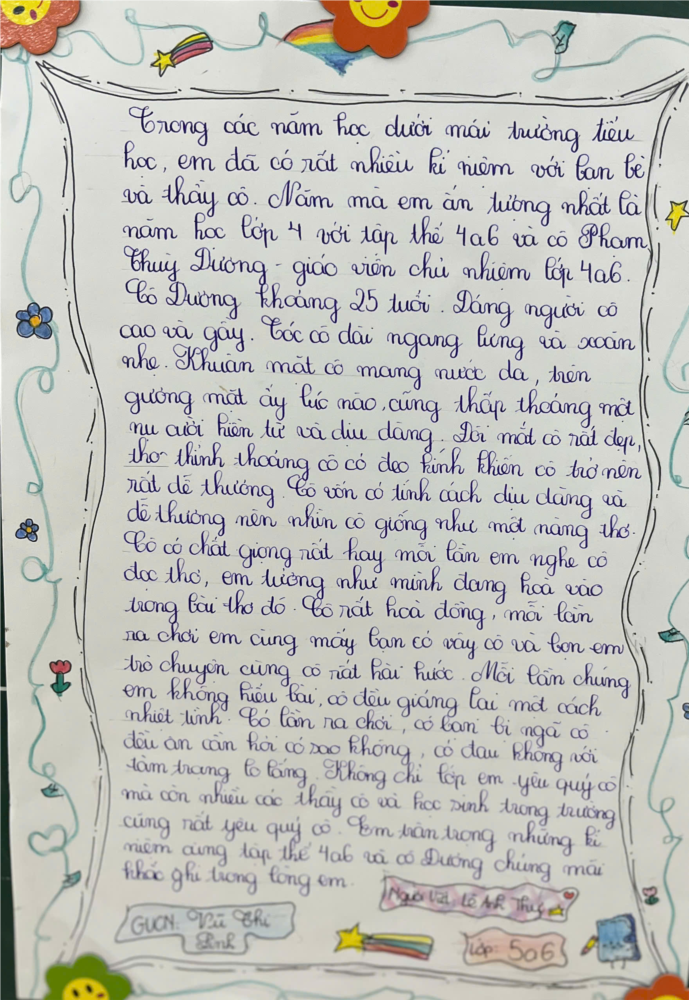 Trong các năm học dưới mái trường tiểu
học, em đã có rất nhiều kỉ niệm với bạn bè
và thầy cô. Năm mà em ấn tượng nhất là
năm học lớp 4 với tập thể 4a6 và cô Phạm
Thuỳ Dương - giáo viên chủ nhiệm lớp 4a6.
Cô Dương khoảng 25 tuổi. Dáng người cô
cao và gầy. Tóc cô dài ngang lưng và xoăn
nhẹ. Khuân mặt cô mang nước da, trên
gương mặt ấy lúc nào, cũng thấp thoáng một
nụ cười hiền từ và dịu dàng. Đôi mắt cô rất đẹp,
thơ thỉnh thoảng cô có đeo kính khiến cô trở nên
rất dễ thương. Cô vốn có tính cách dịu dàng và
dễ thương nên nhìn cô giống như một nàng thơ.
Cô có chất giọng rất hay mỗi lần em nghe cô
đọc thơ, em tưởng như mình đang hoà vào
trong bài thơ đó. Cô rất hoà đồng, mỗi lần
ra chơi em cùng mấy bạn có vây cô và bọn em
trò chuyện cùng cô rất hài hước. Mỗi lần chúng
em không hiểu bài, cô đều giảng lại một cách
nhiệt tình. Có lần ra chơi, có bạn bị ngã cô
đều ân cần hỏi có sao không, có đau không với
tâm trạng lo lắng. Không chỉ lớp em yêu quý cô
mà còn nhiều các thầy cô và học sinh trong trường
cũng rất yêu quý cô. Em trân trọng những kỉ
niệm cùng tập thể 4a6 và cô Dương chúng mãi
khắc ghi trong lòng em.
Người viết: Lê Anh Thuỳ
GVCN: Vũ Thị
Linh
Lớp: 5a6